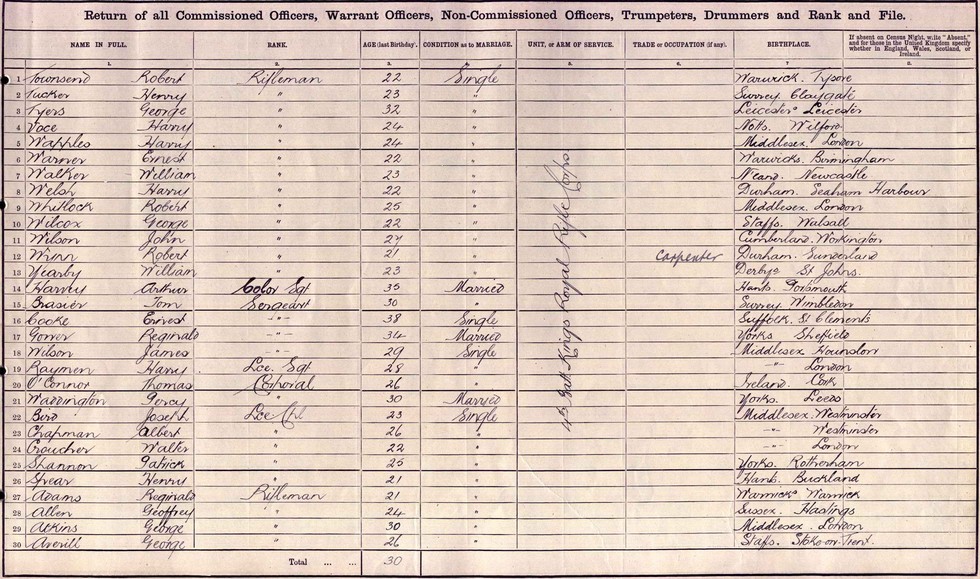 Return of all Commissioned Officers, Warrant Officers, Non-Commissioned Officers, Trumpeters, Drummers and Rank and File.
NAME IN FULL. RANK. AGE (last Birthday). CONDITION as to MARRIAGE. UNIT, or ARM OF SERVICE. TRADE or OCCUPATION (if any). BIRTHPLACE. If absent on Census Night, write "Absent," and for those in the United Kingdom specify whether in England, Wales, Scotland, or Ireland.
1. 2. 3. 4. 5. 6. 7. 8.
1 Townsend Robert Rifleman 22 Single Warwick. Tysoe
2 Tucker Henry " 23 " Surrey Claygate
3 Tyers George " 32 " Leicester Leicester
4 Voce Harry " 24 " Notts. Wilford
5 Wapples Harry " 24 " Middlesex. London
6 Warner Ernest " 22 " Warwicks. Birmingham
7 Walker William " 23 " Newcastle
8 Welsh Harry " 22 " Durham. Seaham Harbour
9 Whitlock Robert " 25 " Middlesex. London
10 Wilcox George " 22 " Staffs. Walsall
11 Wilson John " 27 " Cumberland. Workington
12 Winn Robert " 21 " Carpenter Durham. Sunderland
13 Yearby William " 23 " Derbys St Johns.
14 Harvey Arthur Color Sgt 35 Married Hants. Portsmouth
15 Brasier Tom Sergeant 30 " Surrey. Wimbledon
16 Cooke Ernest -"- 38 Single Suffolk. St Clements
17 Gorrer Reginald -"- 34 Married Yorks Sheffield
18 Wilson James -"- 29 Single Middlesex Hounslow
19 Raymen Harry Lce. Sgt 28 " -"- London
20 O'Connor Thomas Corporal 26 " Ireland. Cork
21 Waddington Percy " 30 Married Yorks. Leeds
22 Bird Joseph Lce Cpl 23 Single Middlesex. Westminster
23 Chapman Albert " 26 " -"- Westminster
24 Croucher Walter " 22 " -"- London
25 Shannon Patrick " 25 " Yorks. Rotherham
26 Spear Henry " 21 " Hants. Buckland
27 Adams Reginald Rifleman 21 " Warwicks Warwick
28 Allen Geoffrey " 24 " Sussex. Hastings
29 Atkins George " 30 " Middlesex. London
30 Averill George " 26 " Staffs. Stoke-on-Trent.
4th Batt. Kings Royal Rifle Corps
Total ... ... 30